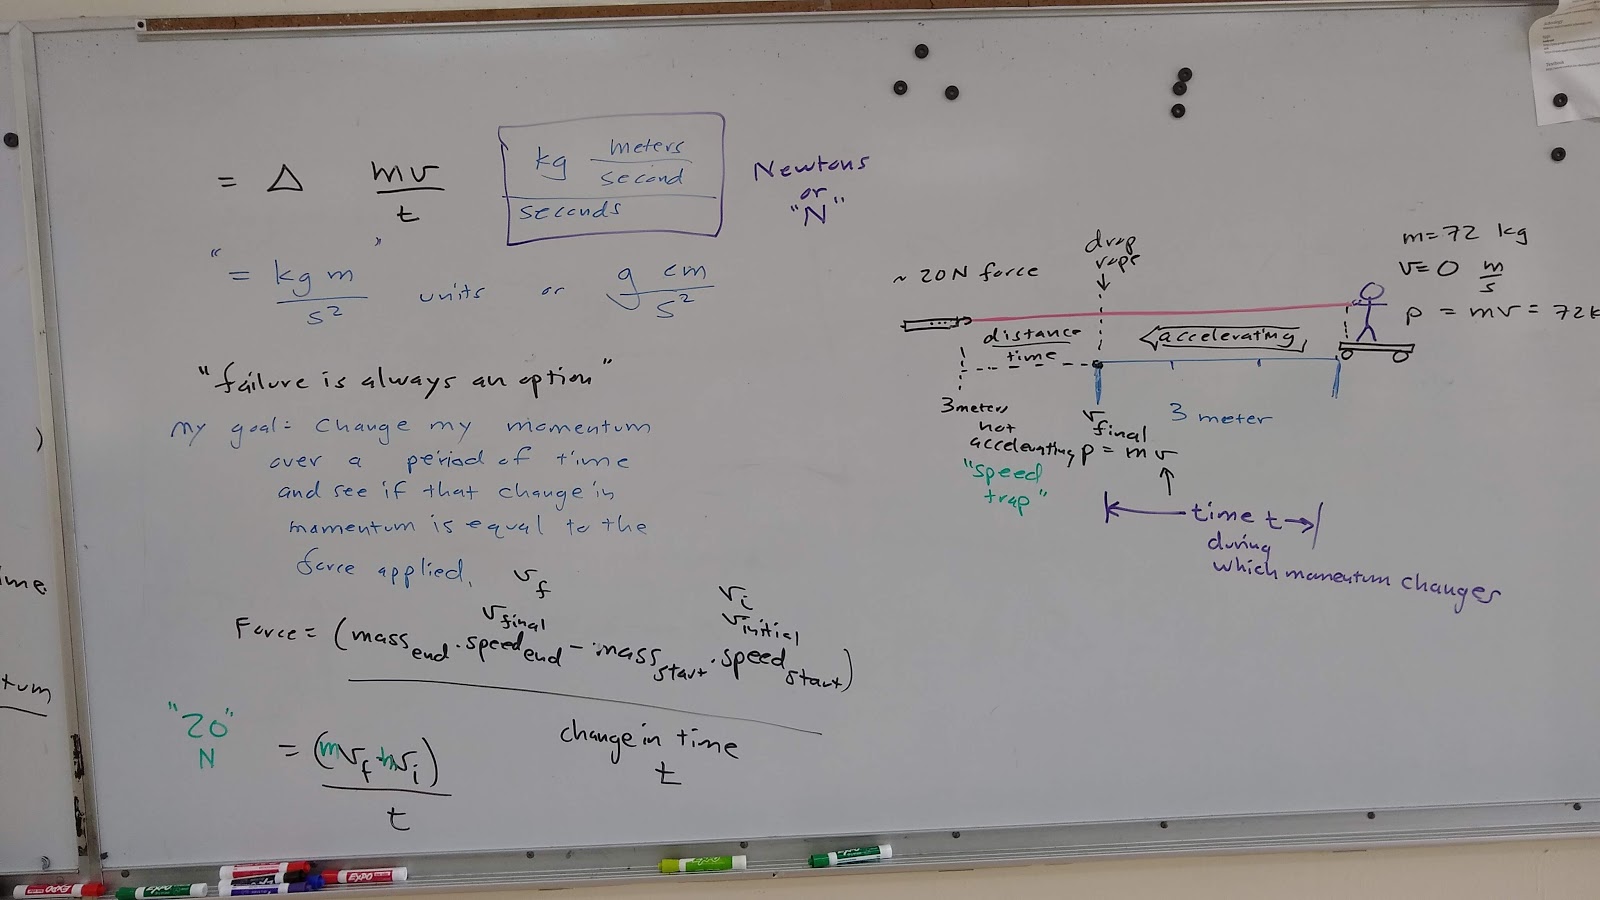 = Δ mv/t
kg meters/second
seconds
Newtons
or
"N"
" = kg m/s² " units or g cm/s²
"failure is always an option"
My goal: Change my momentum
over a period of time
and see if that change in
momentum is equal to the
force applied.
v f
v final
v i
v initial
Force = (mass end · speed end − mass start · speed start)
change in time
t
"20"
N
= (mv f + mv i)
t
~ 20N force
drop
rope
m=72 kg
v=0 m/s
p = mv = 72k
distance
time
accelerating
3 meters
not
accelerating
"speed
trap"
v final
p = mv
3 meter
time t
during
which momentum changes
ime
)
tum
EXPO
EXPO
EXPO
EXPO
EXPO